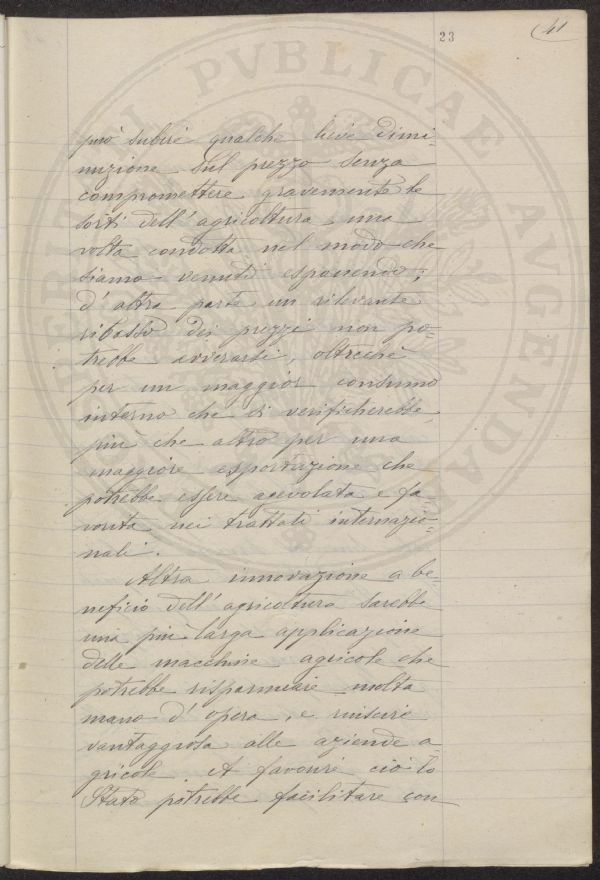 23
41
può subire qualche lieve dimi-
nuzione sul prezzo senza
compromettere gravemente le
sorti dell'agricoltura una
volta condotta nel modo che
siamo venuti esponendo;
d'altra parte un rilevante
ribasso dei prezzi non po-
trebbe avverarsi, oltrechè
per un maggior consumo
interno che si verificherebbe,
più che altro per una
maggiore esportazione che
potrebbe essere agevolata e fa-
vorita nei trattati internazio-
nali.
Altra innovazione a be-
neficio dell'agricoltura sarebbe
una più larga applicazione
delle macchine agricole che
potrebbe risparmiare molta
mano d'opera, e riuscire
vantaggiosa alle aziende a-
gricole. A favorire ciò lo
Stato potrebbe facilitare con